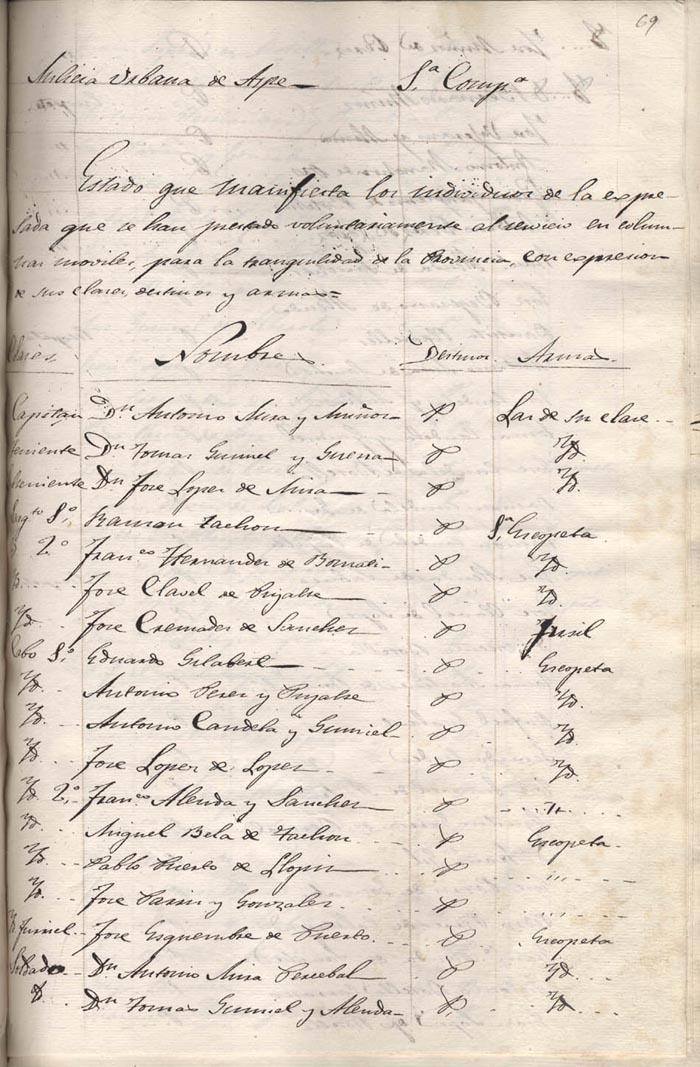 69
Milicia Urbana de Aspe 1.ª Comp.ª
Estado que manifiesta los individuos de la expre-
sada que se han prestado voluntariamente al servicio en colum-
nas moviles, para la tranquilidad de la Provincia, con expresion
de sus clases, destinos y armas=
Clases Nombres Destinos Armas
Capitan Dn. Antonio Mira y Muñoz P. Las de su clase
Teniente Dn Tomas Gumiel y P Yd.
Dn Jose Lopez de Mira P Yd.
Sargto 1.º Ramon Tachon P 1.ª Escopeta
2.º Franco Hernandez de P Yd.
Jose Clavel de P Yd.
Yd. Jose Cremades de Sanchez P Fusil
Cabo 1.º Eduardo Gilabert P Escopeta
Yd. Antonio Perez y P Yd.
Yd. Antonio Candela y Gumiel P Yd.
Yd. Jose Lopez de Lopez P Yd.
Yd. 2.º Franco Alenda y Sanchez P
Yd. Miguel Bela de Tachon P Escopeta
Yd. Pablo Puerto de Llopis P ,,
Yd. Jose y Gonzales P
Jose Esquembre de Puerto P Escopeta
Soldado Dn Antonio Mira Percebal P Yd.
Dn Tomas Gumiel y Alenda P. Yd.